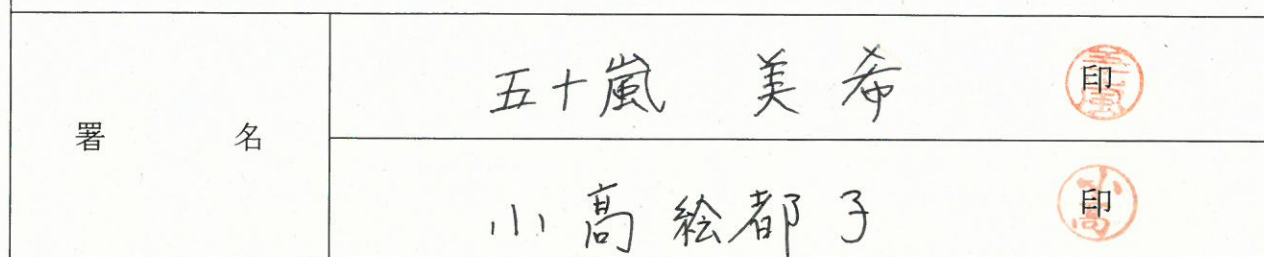 署名
五十嵐 美希 印
小高絵都子 印